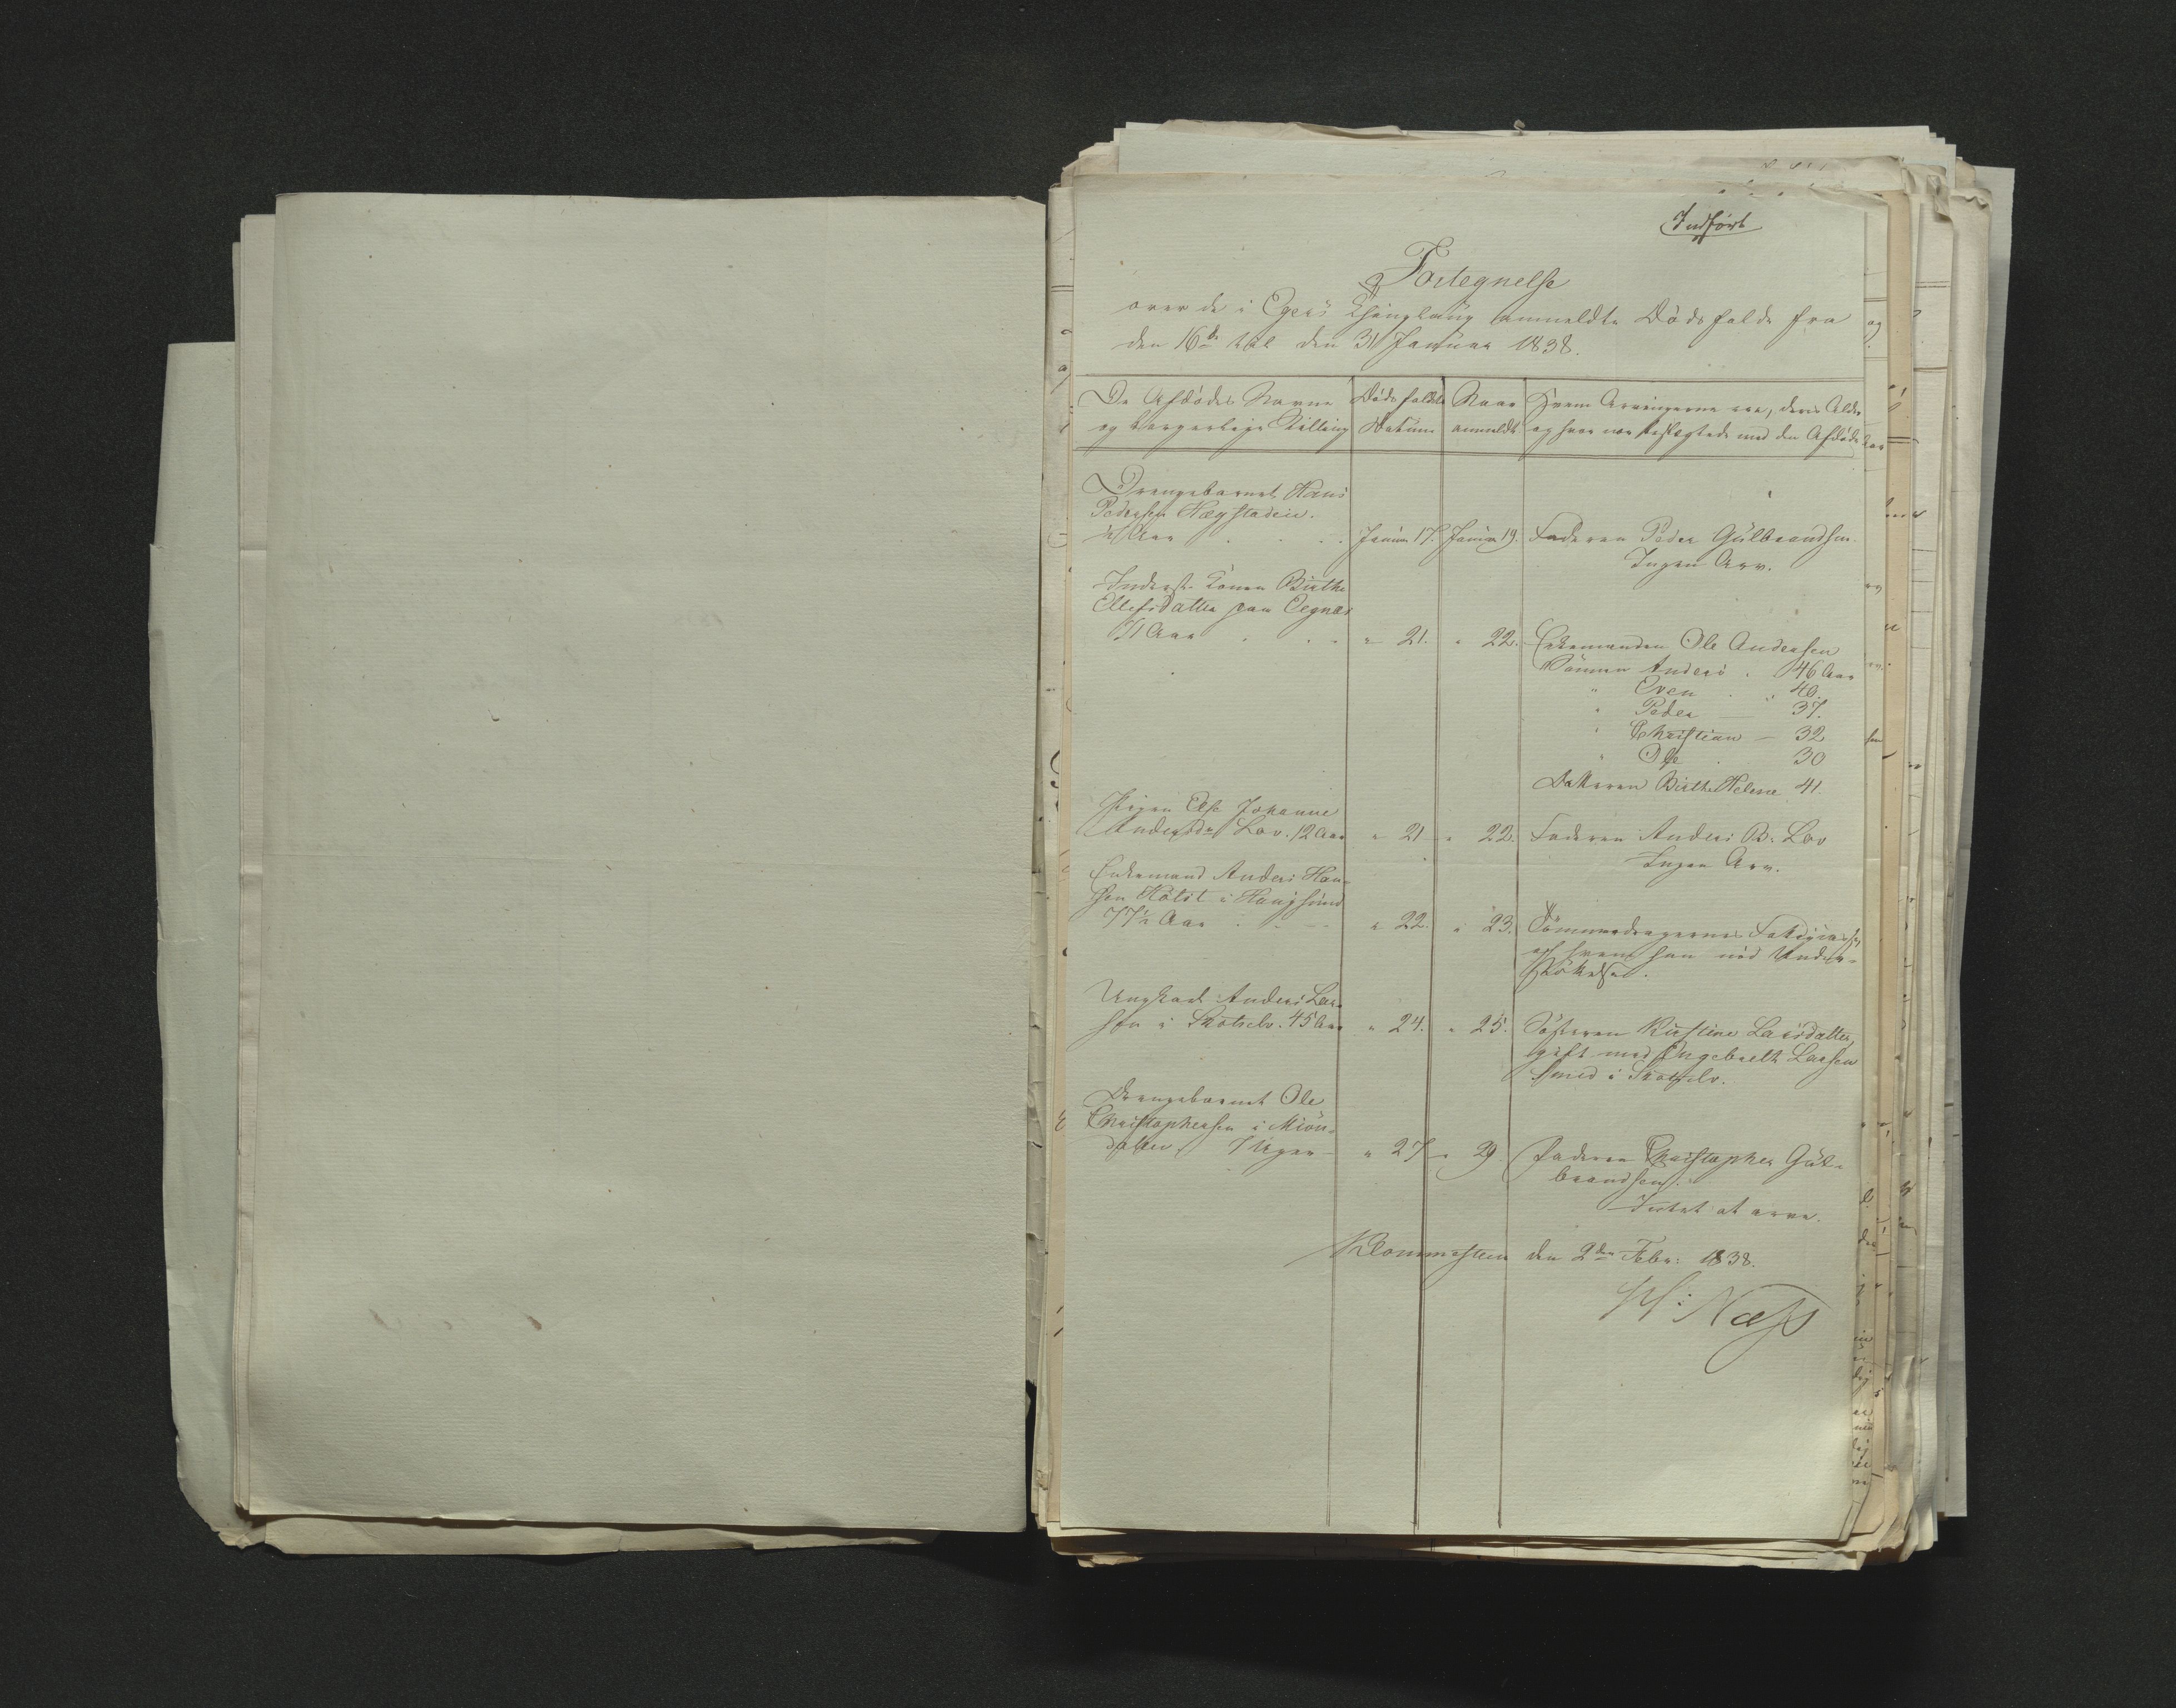 Indført
Fortegnelse
over de i Egers Thinglaug anmeldte Dødsfalde fra
den 16de til den 31 Januar 1838.
De Afdødes Navne
og borgerlige Stilling
Dødsfaldets
Datum
Naar
anmeldt
Hvem Arvingerne ere, deres Alder
og hvor nær beslægtede med den Afdøde
Drengebarnet Hans
Pedersen Hægstadeie.
½ Aar . . . Januar 17. Januar 19. Faderen Peder Gulbrandsen.
Ingen Arv.
Inderste Konen Birthe
Ellefsdatter paa Oegnæs
71 Aar . . . " 21. " 22. Enkemanden Ole Andersen
Sønnen Anders . 46 Aar
" Even . . 40.
" Peder — 37.
" Christian — 32
" Ole . 30
Datteren Birthe Helene 41.
Pigen Else Johanne
Andersdr Lov. 12 Aar " 21 " 22. Faderen Anders B. Lov
Ingen Arv.
Enkemand Anders Han-
sen i Haugsund
77½ Aar . . . " 22. " 23. Tømmerdragernes
af hvem han nød Under-
støttelse.
Ungkarl Anders Lar-
sen i Skotselv. 45 Aar " 24. " 25. Søsteren Kirstine Larsdatter,
gift med Engebreth Larsen
Smed i Skotselv.
Drengebarnet Ole
Christophersen i Miøn-
dalen, 7 Uger - " 27 " 29. Faderen Christopher Gul-
brandsen.
Intet at arve.
Klommesteen den 2den Febr: 1838.
Næss